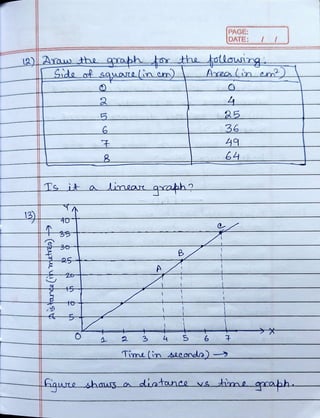 PAGE:
DATE: / /
12) Draw the graph for the following.
Side of square (in cm) Area (in cm²)
0 0
2 4
5 25
6 36
7 49
8 64
Is it a linear graph?
13)
Y
40
35
30
25
20
15
10
5
0
1 2 3 4 5 6 7
X
A
B
C
Distance (in metres) →
Time (in seconds) →
Figure shows a distance vs time graph.